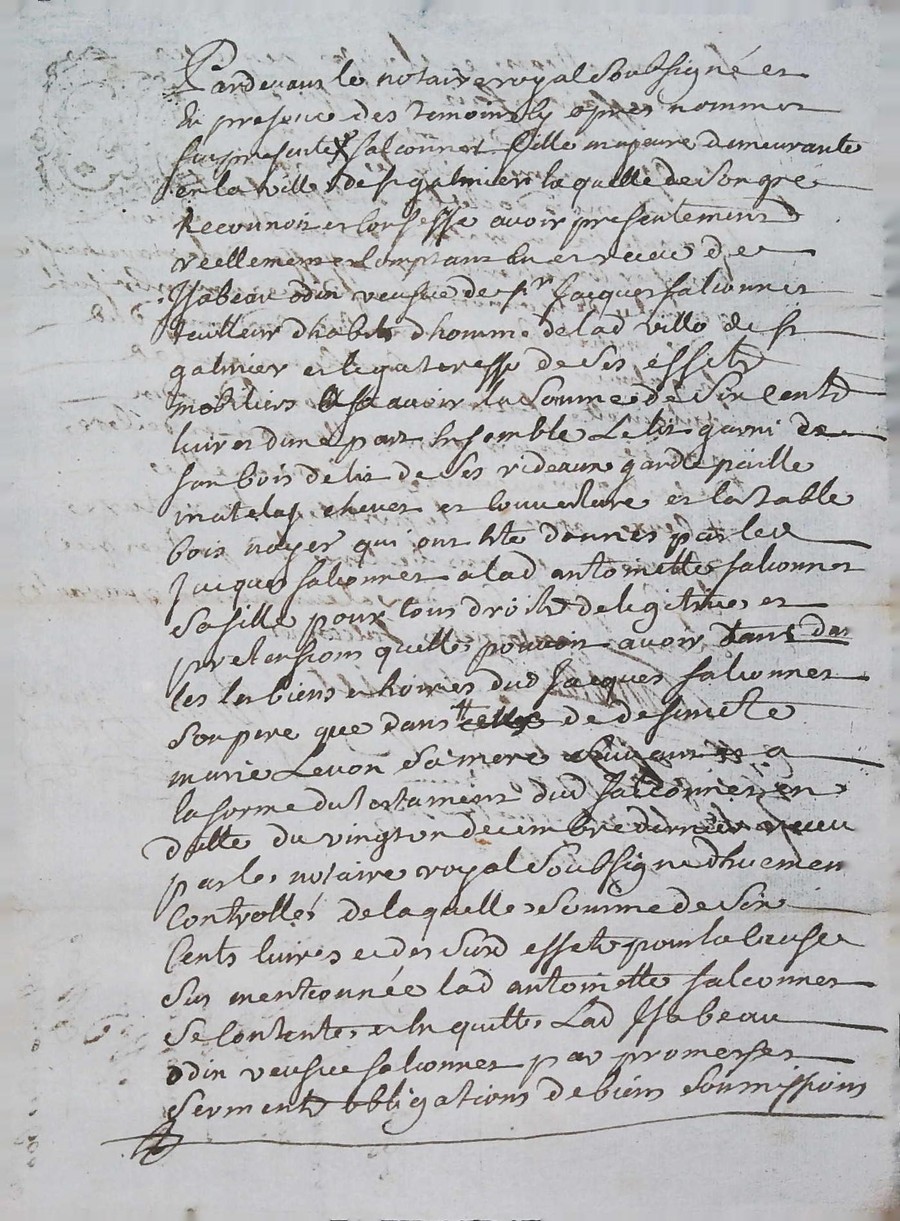 Pardevant le notaire royal Soubsigné et
En presence des temoins cy apres nommes
fut presente falconnet fille majeure demeurante
en la ville de st galmier laquelle de Son gré
Reconnoit et confesse avoir presentement
reellement et comptant eu et receu de
Isabeau odin veufve de sr Jacques falconnet
tailleur dhabits dhomme de lad ville de st
galmier et legateresse de Ses effets
mobiliers la Somme de Six Cents
livres dune part Ensemble Le lit garni de
son bois de lit de Ses rideaux garde paille
matelas chevet et couverture et la table
bois noyer qui ont été donnes par led
Jacques falconnet a lad antoinette falconnet
Sa fille pour tous droits de legitime et
pretensions quelle pouvoit avoir tant dans
les biens et hoiries dud Jacques falconnet
Son pere que dans celles de defuncte
marie Levon Sa mere a
la forme du testament dud falconnet en
datte du vingt un decembre dernier receu
par le notaire royal Soubsigné dhuement
Controllé de laquelle Somme de Six
Cents livres et des Susd effets pour la cause
Sus mentionnée lad antoinette falconnet
Se contente et En quitte Lad Isabeau
odin veufve falconnet par promesses
Serment obligations de biens Soumissions